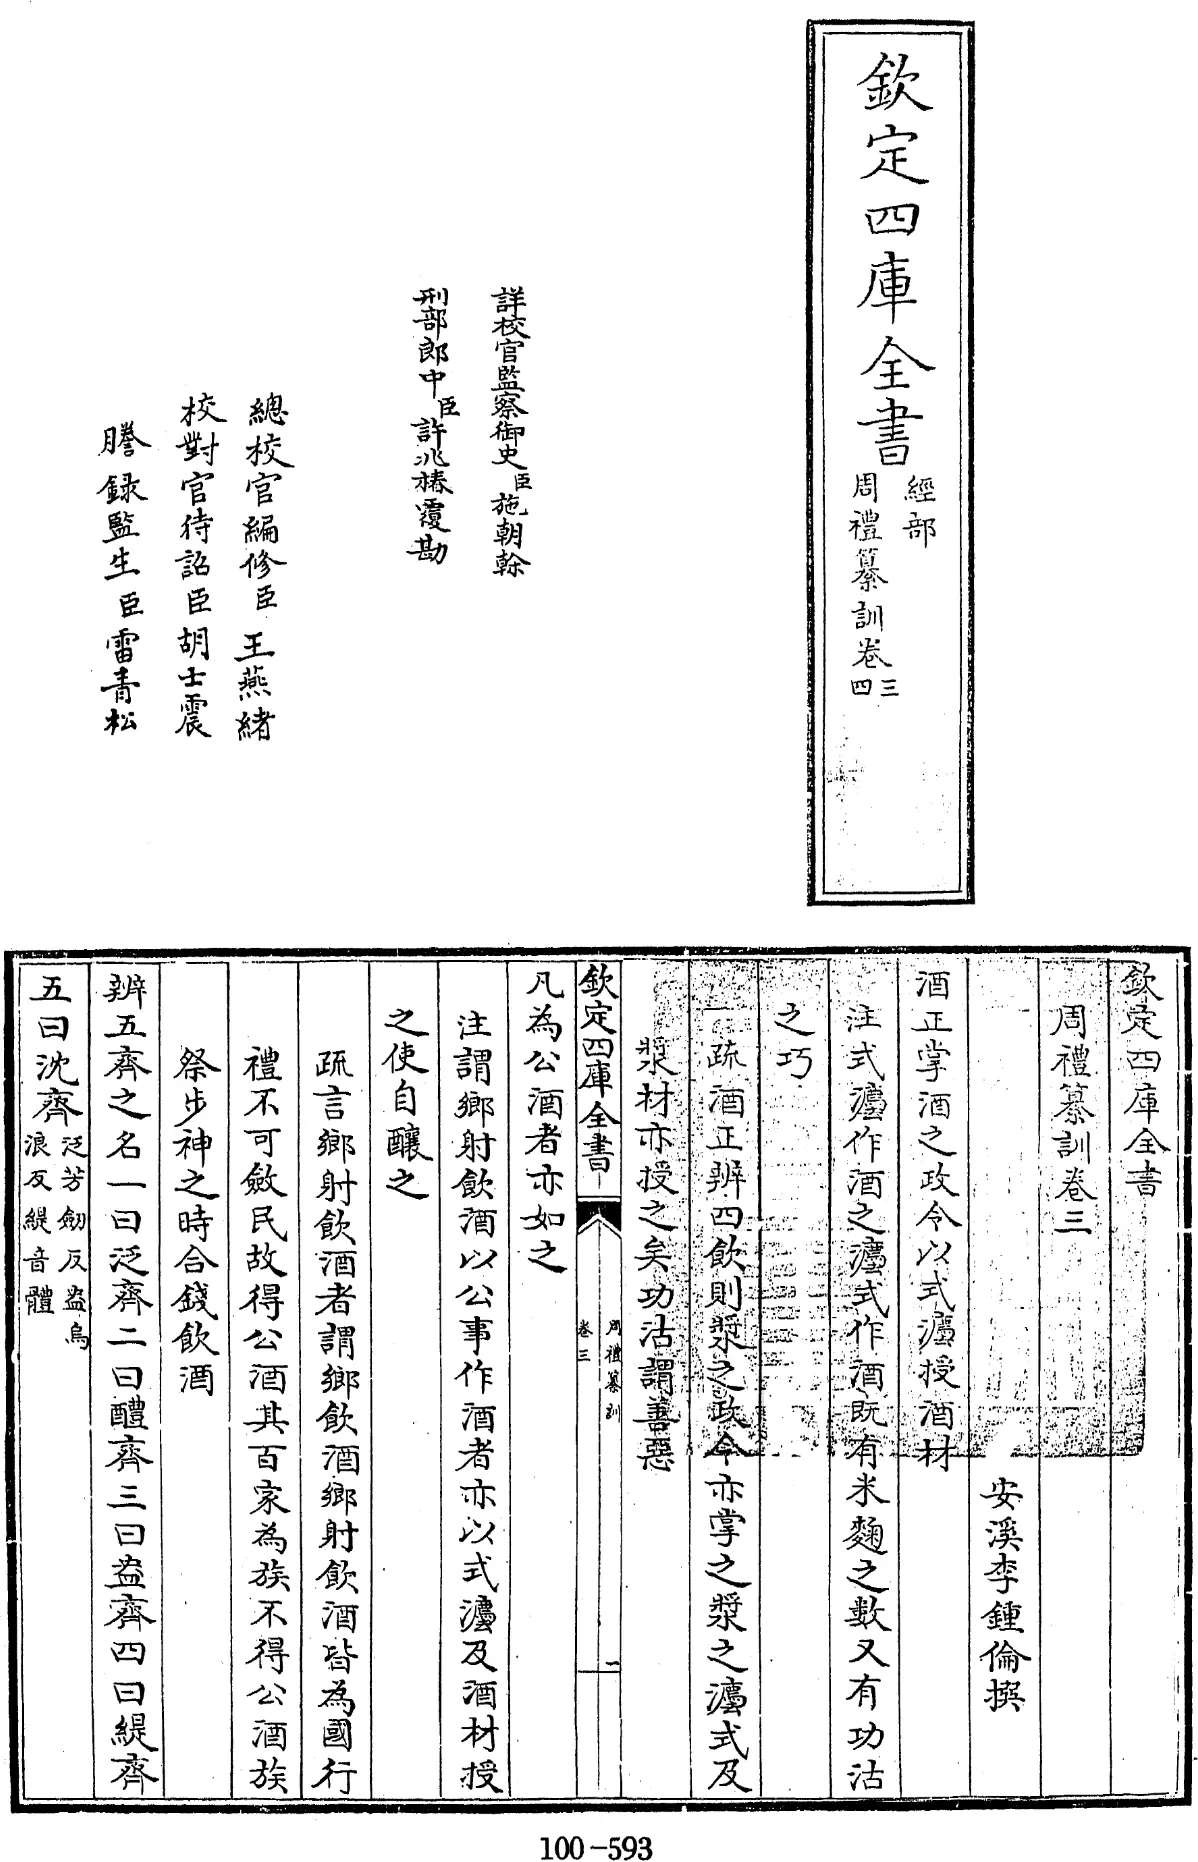 欽定四庫全書
經部
周禮纂訓卷三
四
詳校官監察御史臣施朝幹
刑部郎中臣許兆椿覆勘
總校官編修臣王燕緒
校對官待詔臣胡士震
謄錄監生臣雷青松
欽定四庫全書
周禮纂訓卷三
安溪李鍾倫撰
酒正掌酒之政令以式灋授酒材
注式灋作酒之灋式作酒既有米麴之數又有功沽
之巧
疏酒正辨四飲則漿之政令亦掌之漿之灋式及
漿材亦授之矣功沽謂善惡
欽定四庫全書
周禮纂訓
卷三
一
凡為公酒者亦如之
注謂鄉射飲酒以公事作酒者亦以式灋及酒材授
之使自釀之
疏言鄉射飲酒者謂鄉飲酒鄉射飲酒皆為國行
禮不可斂民故得公酒其百家為族不得公酒族
祭步神之時合錢飲酒
辨五齊之名一曰泛齊二曰醴齊三曰盎齊四曰緹齊
五曰沈齊泛芳劒反盎烏
浪反緹音體
100-593